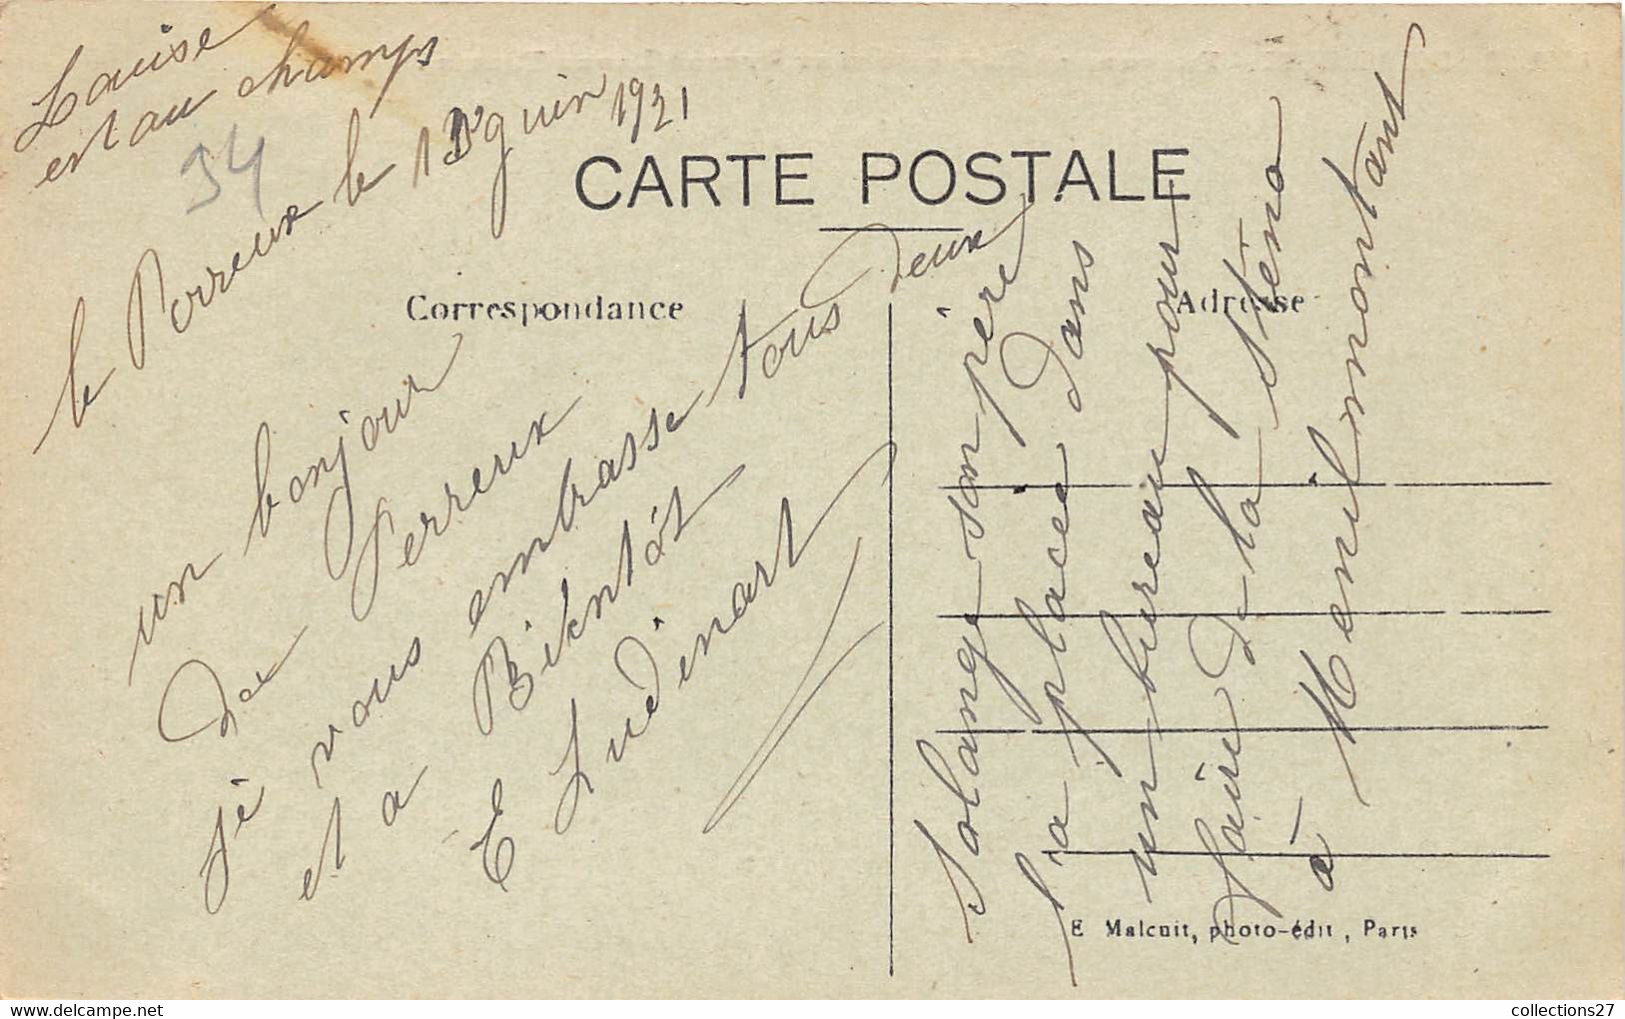 Louise
est au champs
34
le Perreux le 13 juin 1921
CARTE POSTALE
Correspondance
Adresse
un bonjour
du Perreux
Je vous embrasse tous deux
et a Bientôt
E Ludinart
Solange son père
l'a placée dans
un bureau pour
faire de la sténo
à Menilmontant
E Malcuit, photo-édit, Paris
collections27